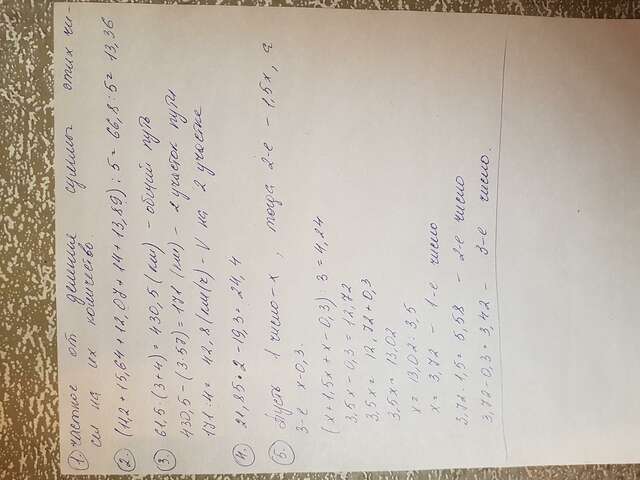 1. частное от деления суммы этих чи
сел на их количество.
2. (11,2 + 15,64 + 12,07 + 14 + 13,89) : 5 = 66,8 : 5 = 13,36
3. 61,5 · (3+4) = 430,5 (км) - общий путь
430,5 - (3·57) = 171 (км) - 2 участок пути
171 : 4 = 42,8 (км/ч) - V на 2 участке
4. 21,85 · 2 - 19,3 = 24,4
5. Пусть 1 число - x, тогда 2-е - 1,5x, а
3-е x-0,3.
(x + 1,5x + x - 0,3) : 3 = 4,24
3,5x - 0,3 = 12,72
3,5x = 12,72 + 0,3
3,5x = 13,02
x = 13,02 : 3,5
x = 3,72 - 1-е число
3,72 · 1,5 = 5,58 - 2-е число
3,72 - 0,3 = 3,42 - 3-е число.